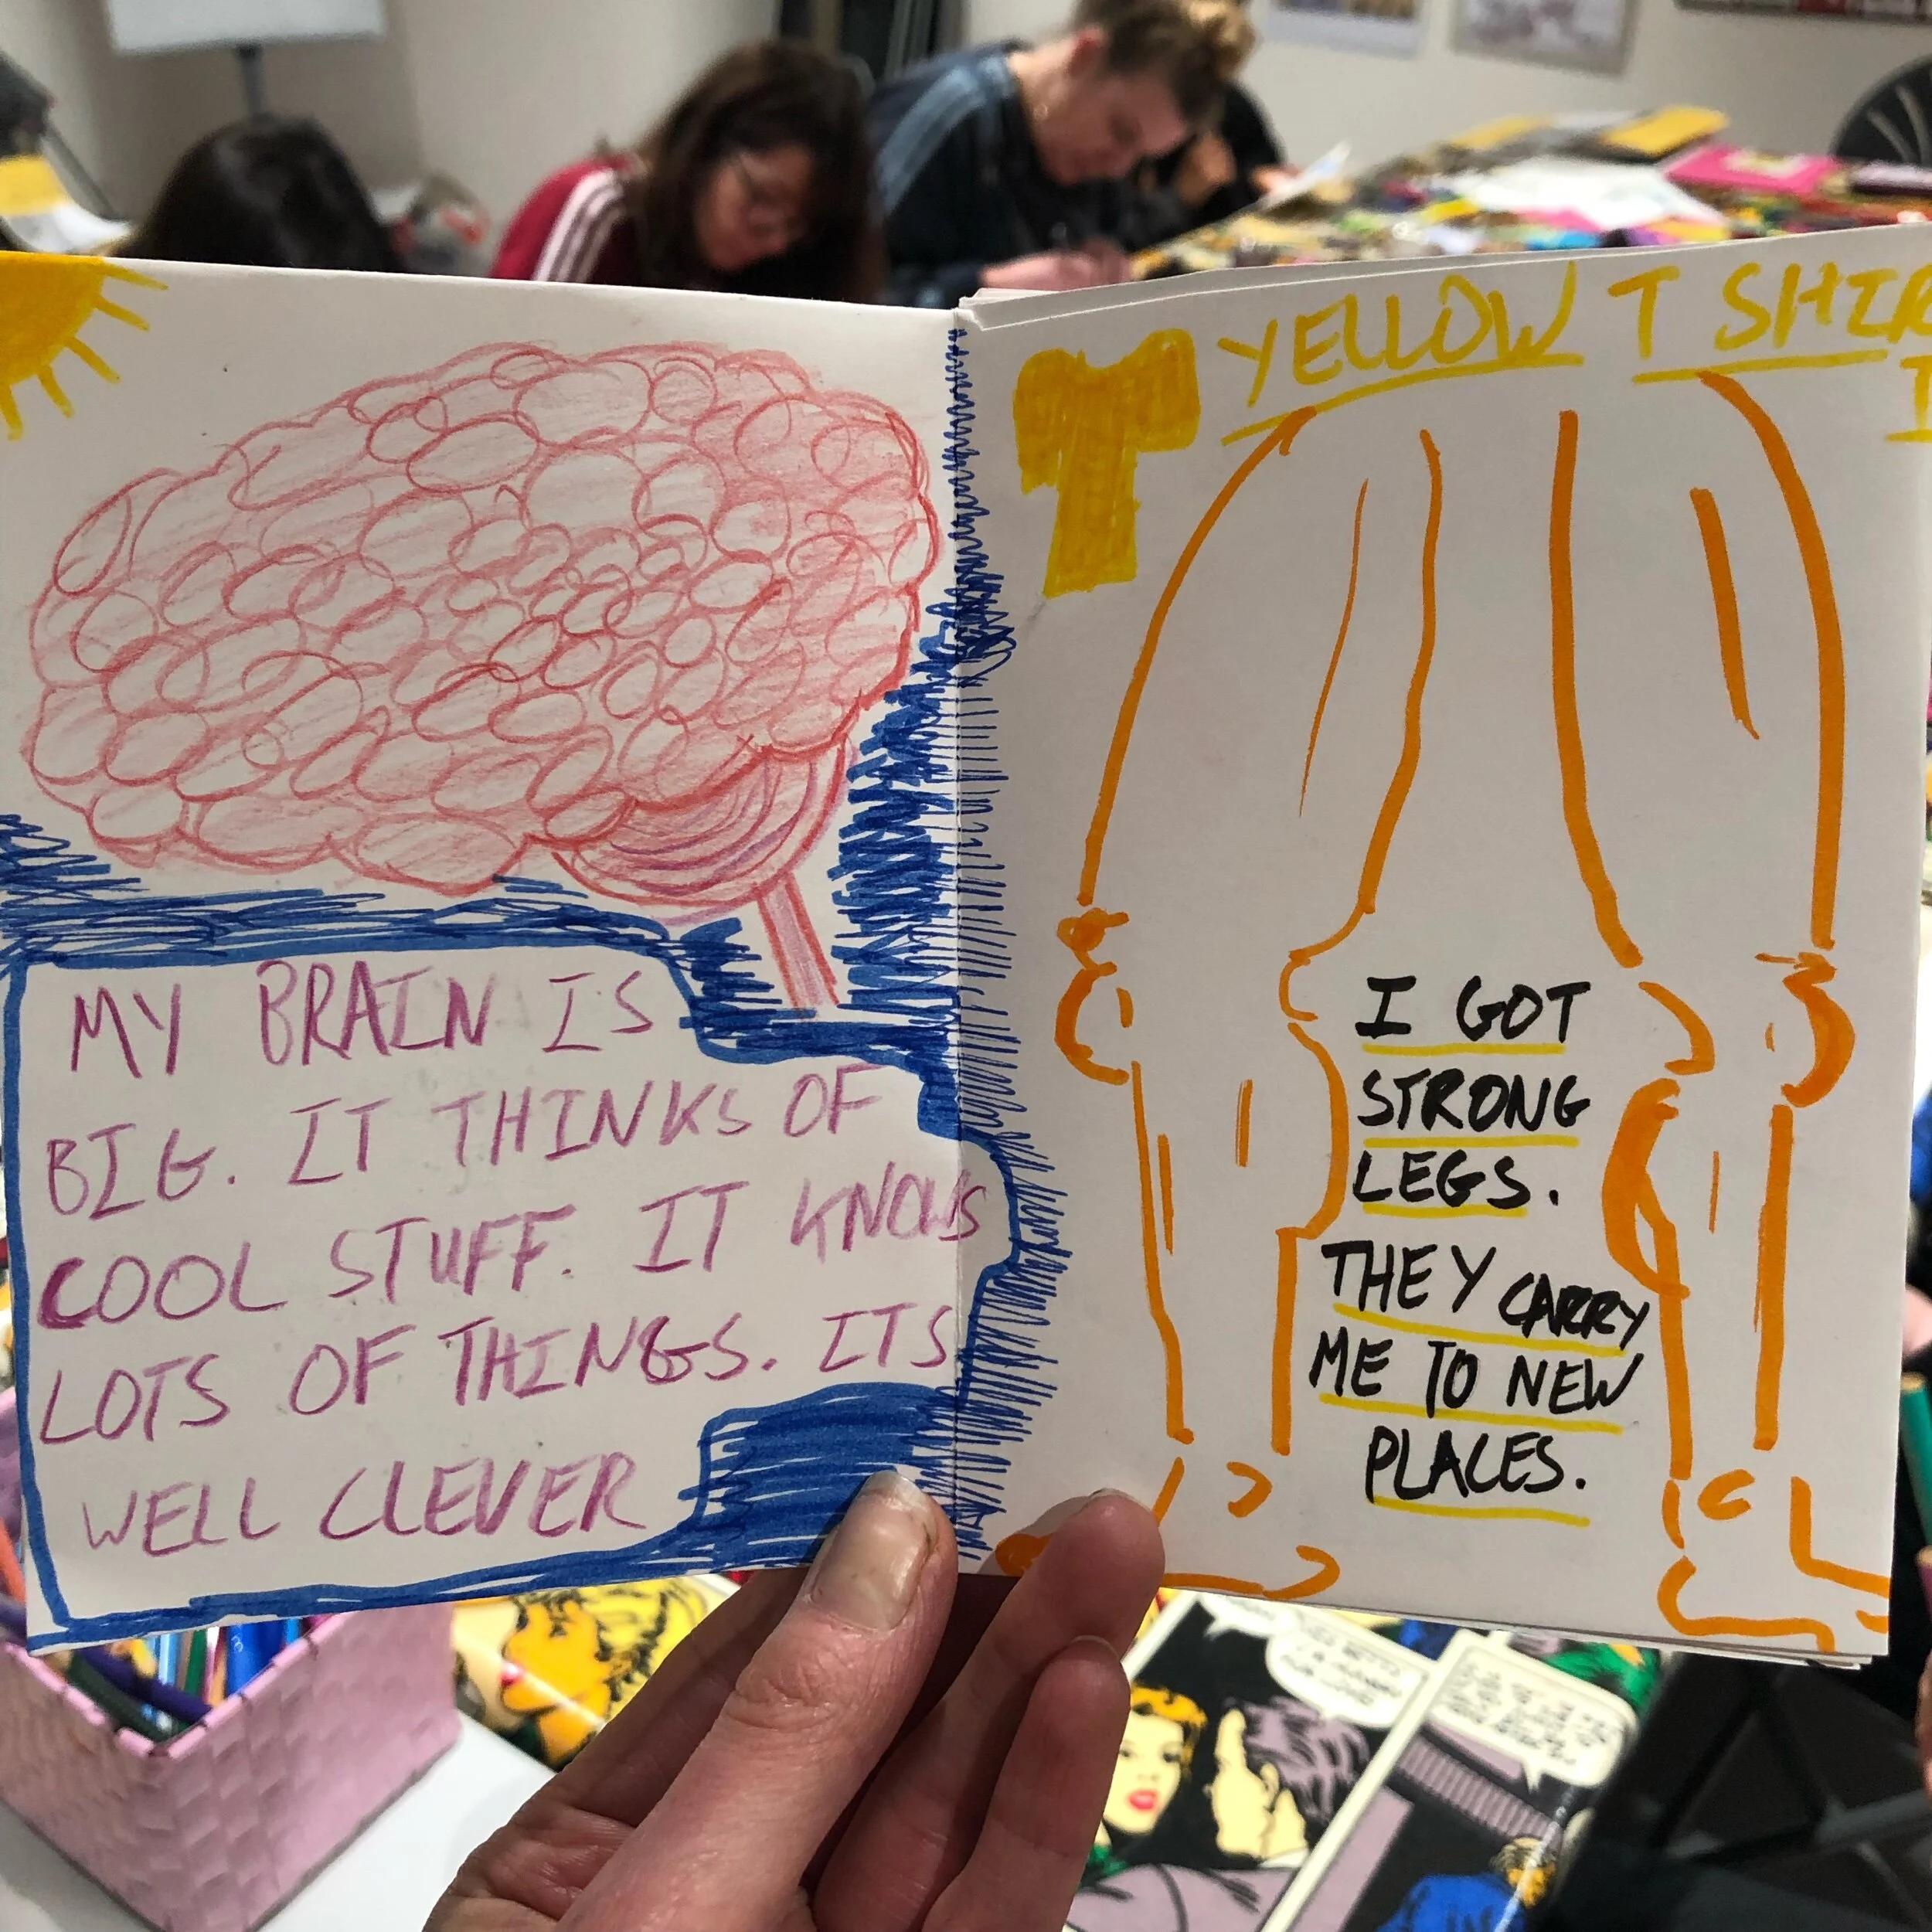 MY BRAIN IS
BIG. IT THINKS OF
COOL STUFF. IT KNOWS
LOTS OF THINGS. ITS
WELL CLEVER
YELLOW T SHIR
I GOT
STRONG
LEGS.
THEY CARRY
ME TO NEW
PLACES.